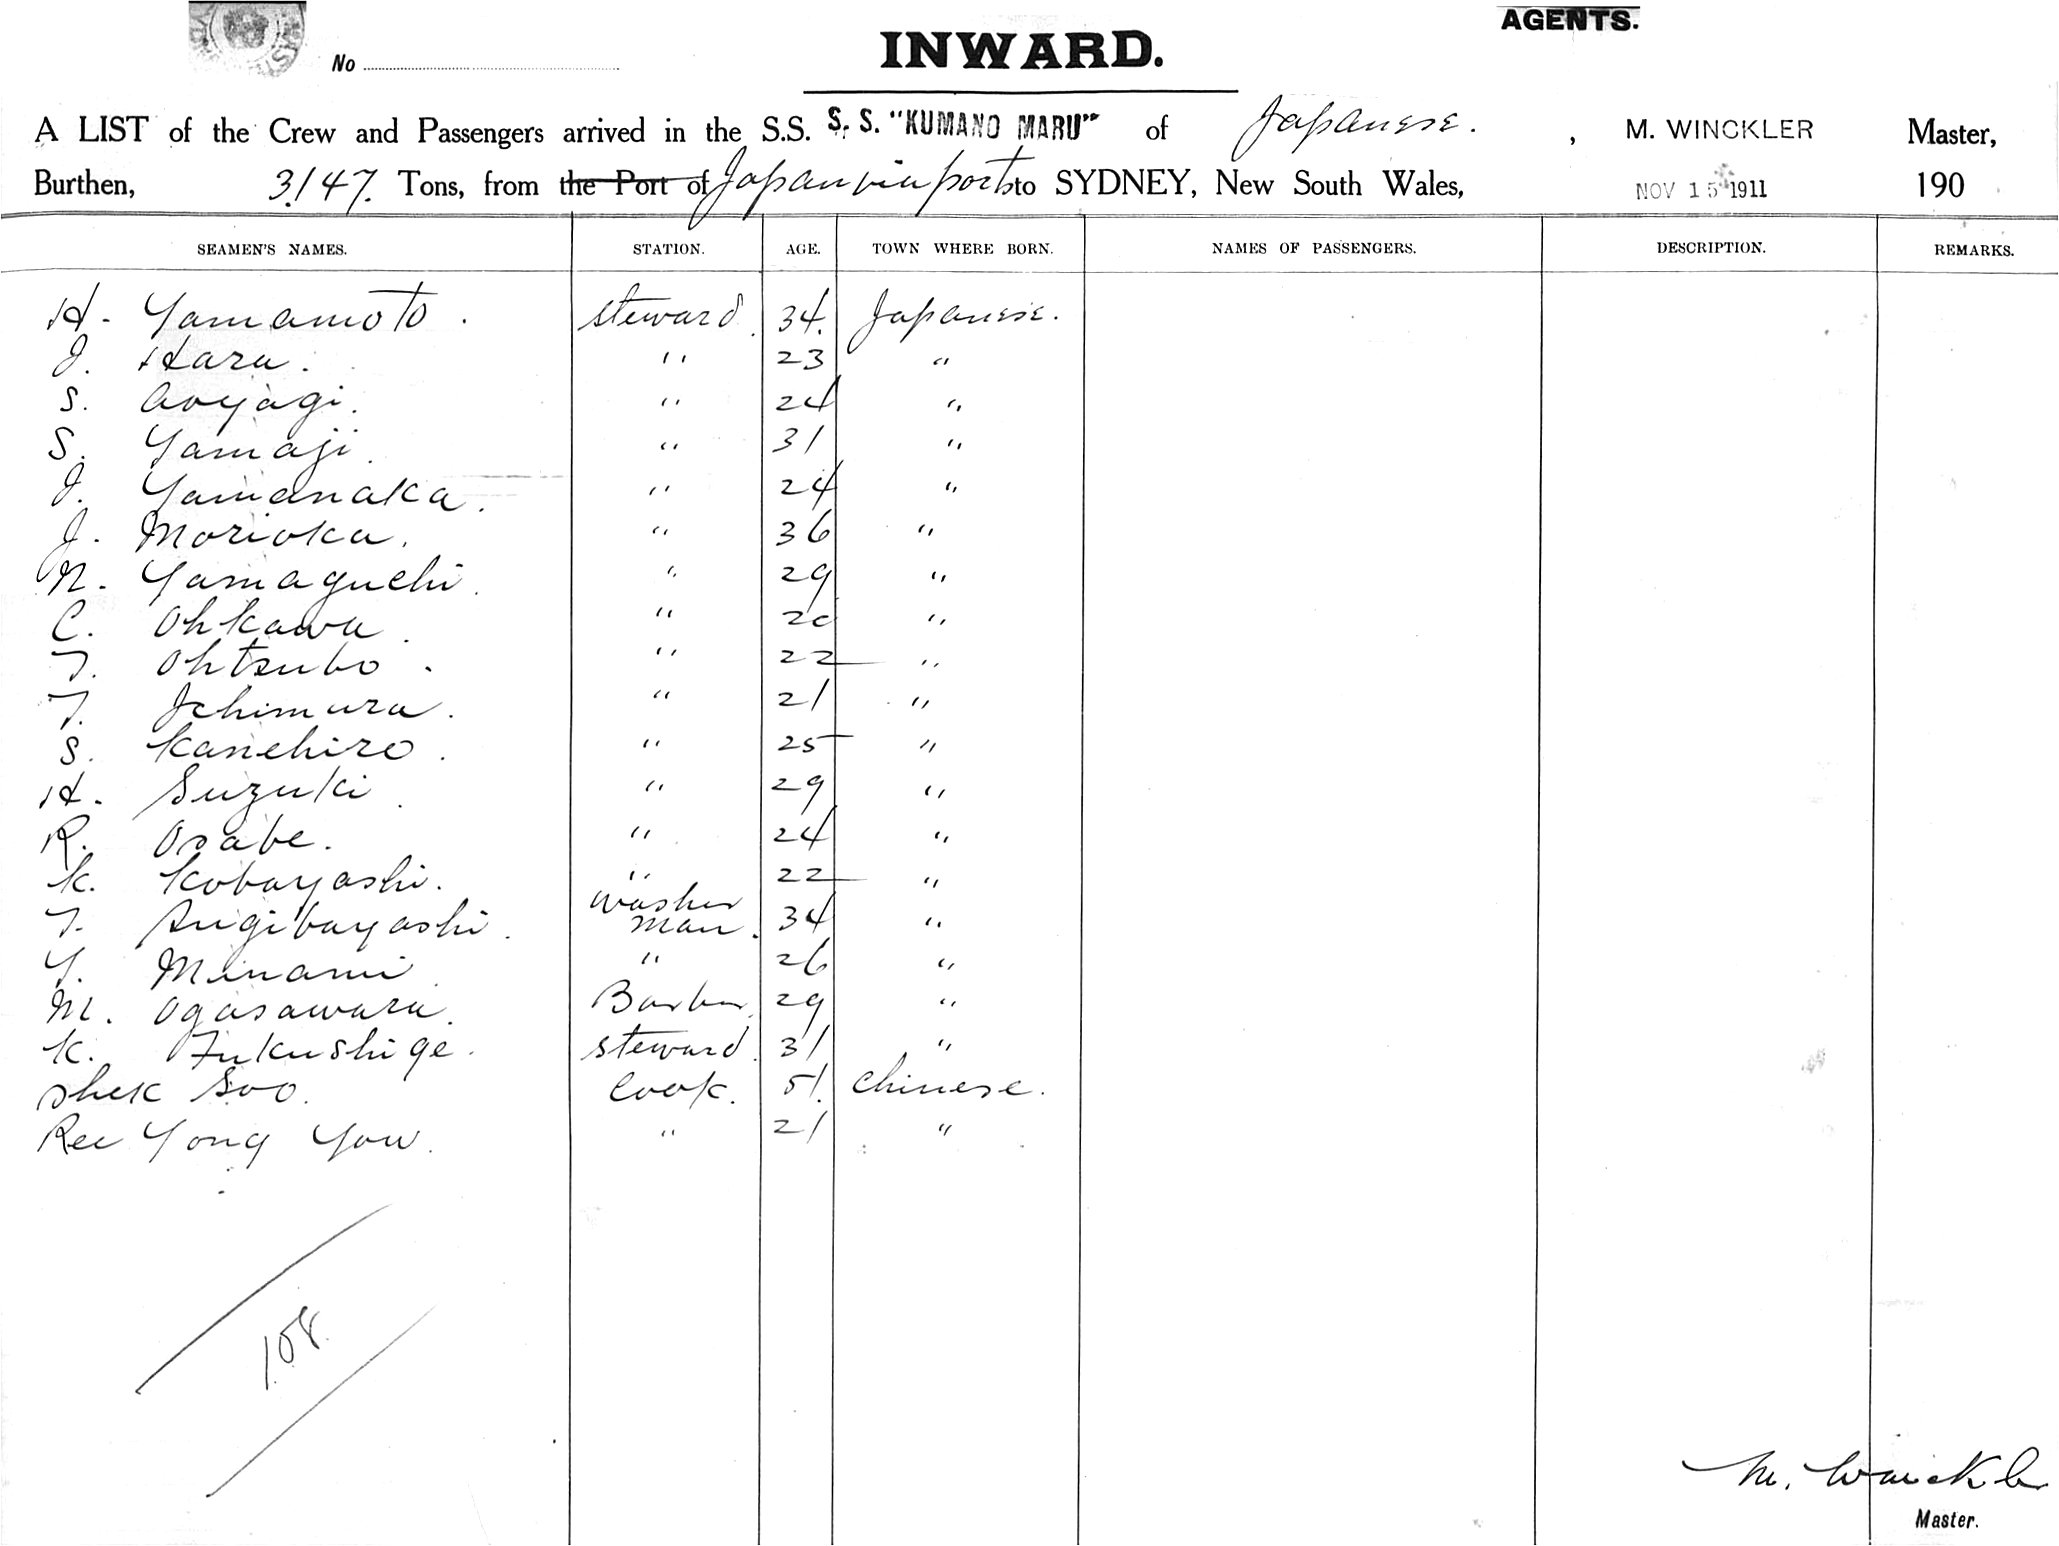 AGENTS.
No
INWARD.
A LIST of the Crew and Passengers arrived in the S.S. S. S. "KUMANO MARU" of Japanese. , M. WINCKLER Master,
Burthen, 3147. Tons, from the Port of Japan via ports to SYDNEY, New South Wales, NOV 15 1911 190
SEAMEN'S NAMES. STATION. AGE. TOWN WHERE BORN. NAMES OF PASSENGERS. DESCRIPTION. REMARKS.
H. Yamamoto. steward. 34. Japanese.
J. Hara. " 23 "
S. Aoyagi. " 24 "
S. Yamaji. " 31 "
J. Yamanaka. " 24 "
J. Morioka. " 36 "
N. Yamaguchi. " 29 "
C. Ohkawa. " 20 "
T. Ohtsubo. " 22 "
T. Ichimura. " 21 "
S. Kanehiro. " 25 "
H. Suzuki. " 29 "
R. Osabe. " 24 "
K. Kobayashi. " 22 "
T. Sugibayashi. washer man. 34 "
Y. Minami. " 26 "
M. Ogasawara. Barber. 29 "
K. Fukushige. steward. 31 "
Shek Soo. Cook. 51. Chinese.
Kee Yong Yow. " 21 "
108.
M. Winckler
Master.